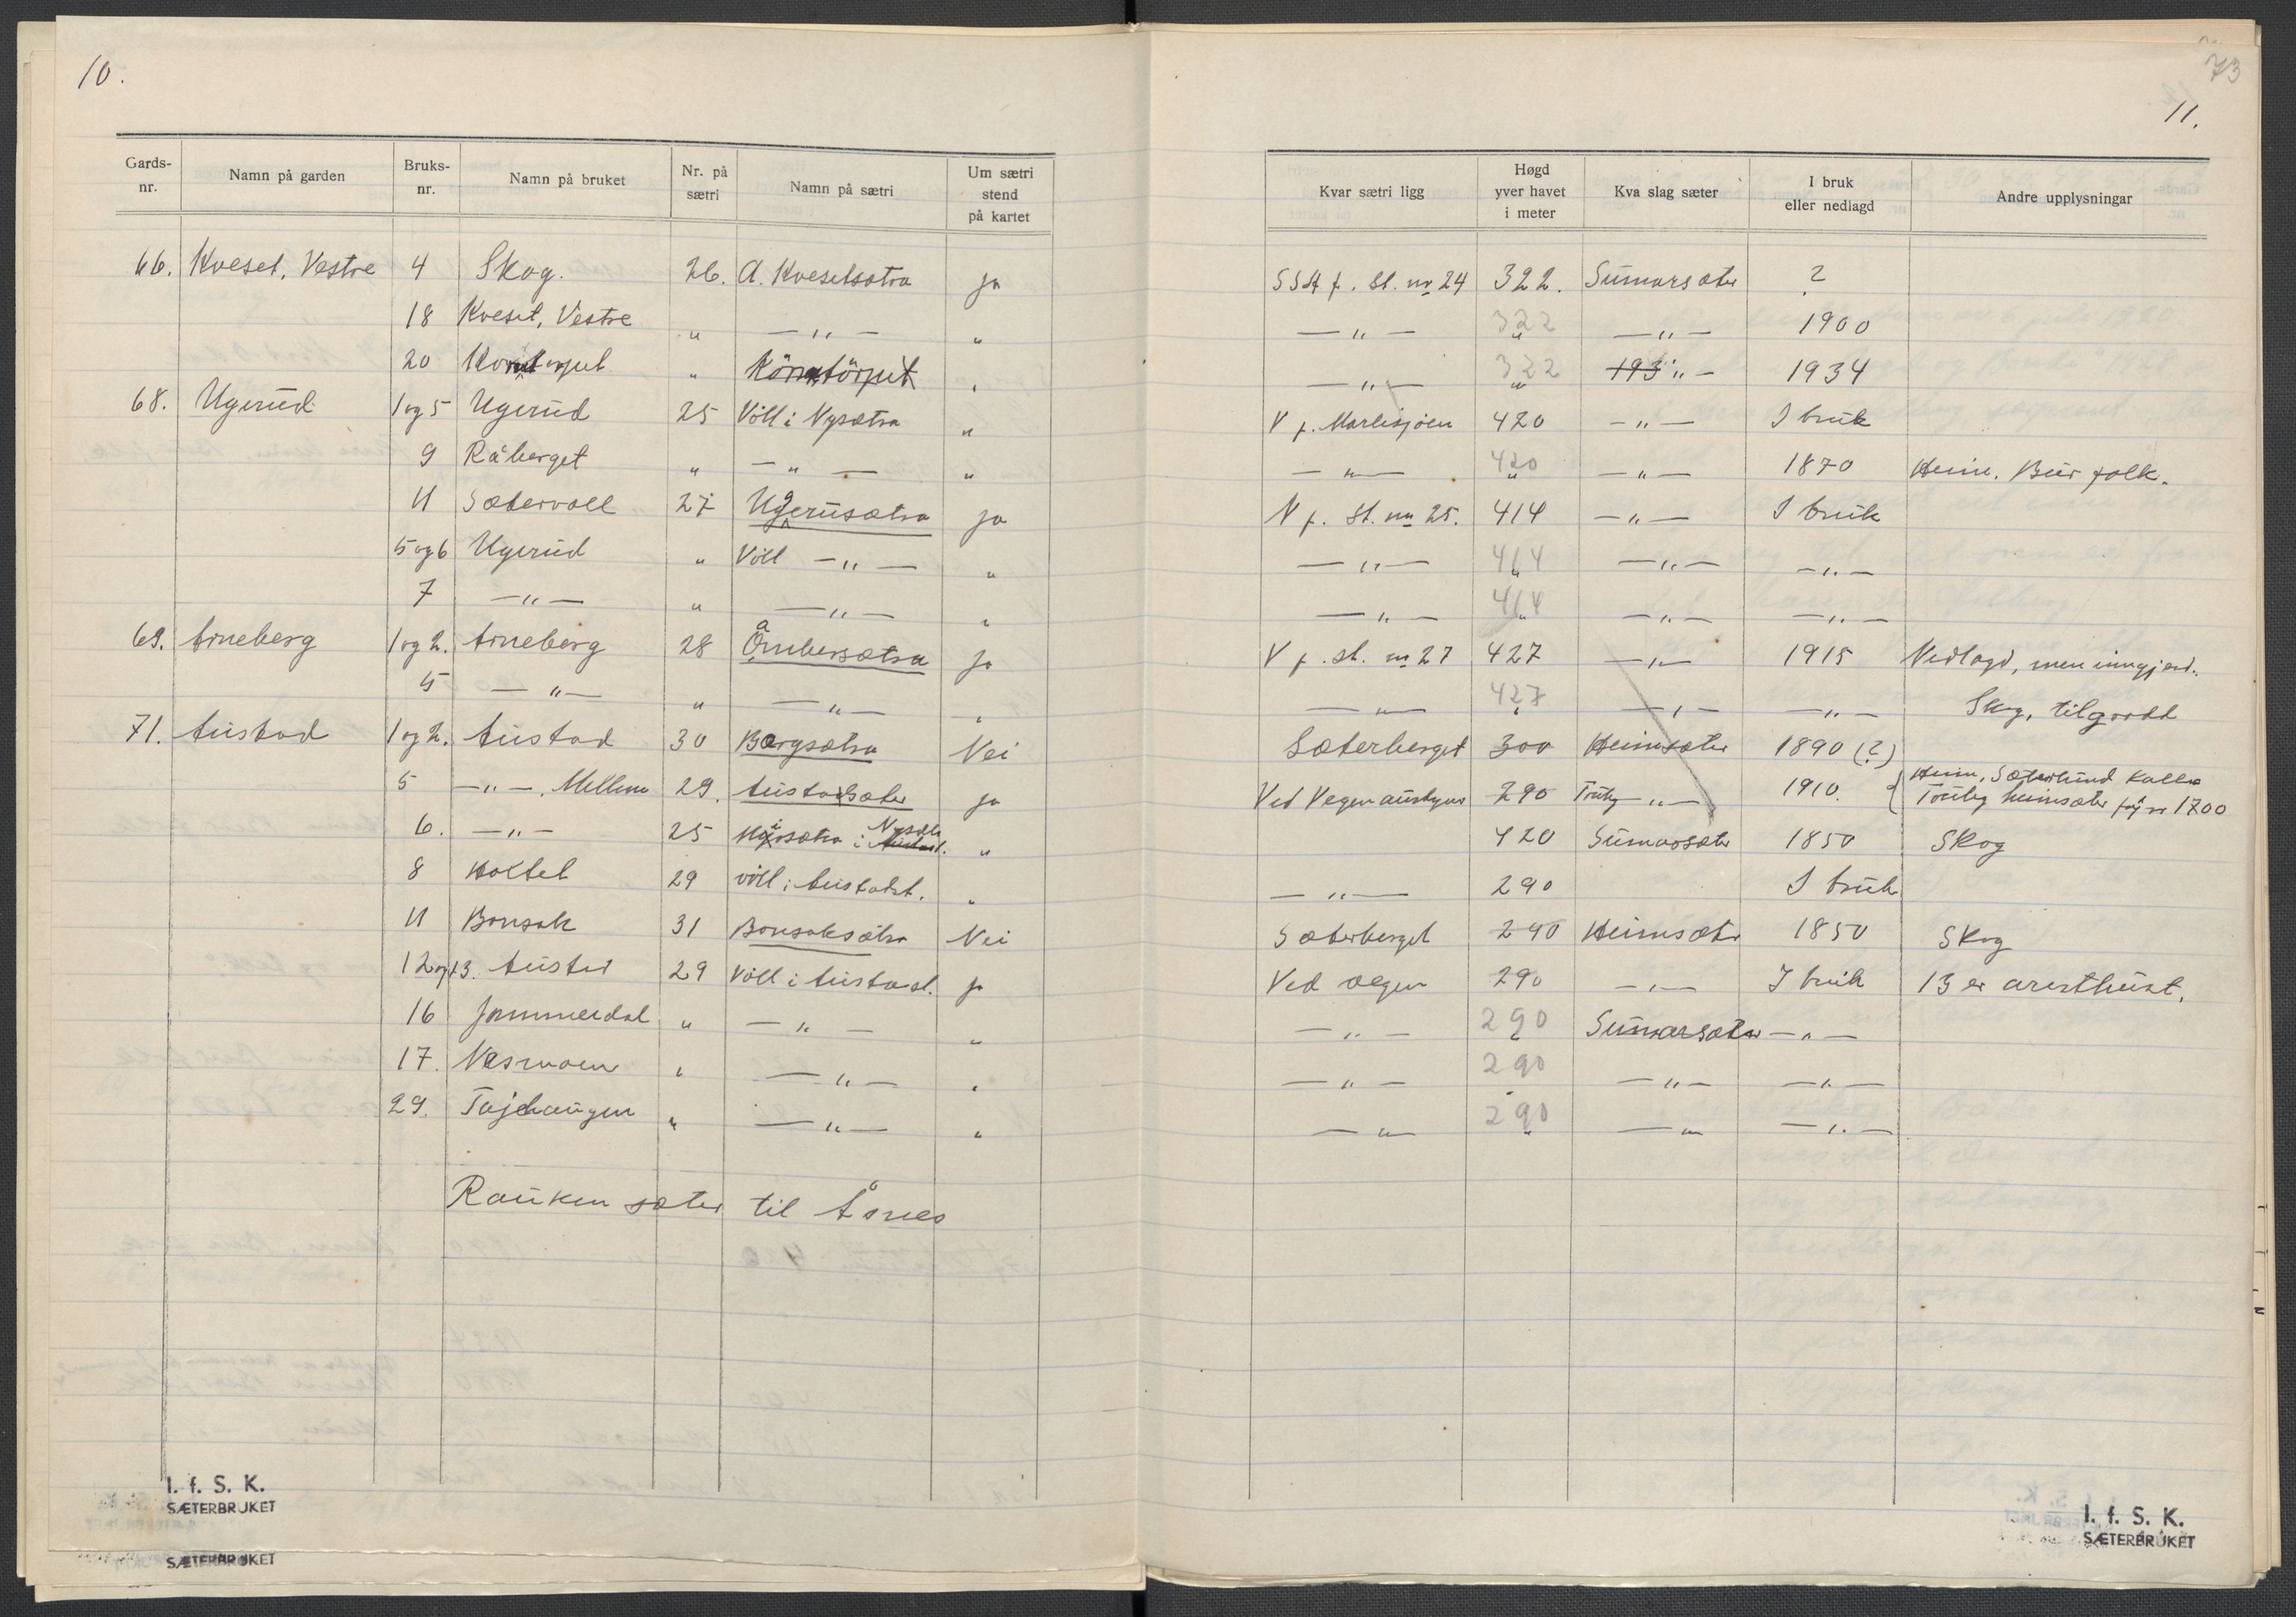 10.
Gards-nr. Namn på garden Bruks-nr. Namn på bruket Nr. på sætri Namn på sætri Um sætri stend på kartet
66. Kveset, Vestre 4 Skog. 26. A. Kvesetsætra ja
18 Kveset, Vestre " — " — "
20 "
68. Ugerud 1 og 5 Ugerud 25 Völl i Nysætra "
9 Råberget " — " — "
11 Sætervoll 27 Ugerusætra ja
5 og 6 Ugerud " Völl — " — "
7 — " — " — " — "
69. Arneberg 1 og 2. Arneberg 28 ja
5 — " — " — " — "
71. Austad 1 og 2. Austad 30 Bergsætra Nei
5 — " —, Mellem 29. Austadsæter ja
6. — " — 25 i "
8 Holtet 29 völl i Austadst. "
11 Bonsak 31 Bonsaksætra Nei
12 og 13. Austad 29 Völl i Austadst. ja
16 Jammerdal " — " — "
17. Næsmoen " — " — "
29. " — " — "
Rauken sæter til Åsnes
I. f. S. K.
SÆTERBRUKET
SÆTERBRUKET
73
11.
Kvar sætri ligg Høgd yver havet i meter Kva slag sæter I bruk eller nedlagd Andre upplysningar
f. St. nr 24 322. Sumarsæter ?
— " — 322 " — " — 1900
— " — 322 " 193 " — 1934
V f. 420 — " — I bruk
— " — 420 " — " — 1870 Heim. Bur folk.
N f. St. nr 25. 414 — " — I bruk
— " — 414 " — " — — " —
— " — 414 " — " — — " —
V f. st. nr 27 427 — " — 1915 Nedlagd, men inngjerd.
— " — 427 " — " — — " — Skog, tilgrodd
Sæterberget 300 Heimsæter 1890 (?)
Ved Vegen 290 — " — 1910. Heim, Sæterlund
heimsæter 1700
420 Sumarsæter 1850 Skog
— " — 290 I bruk
Sæterberget 290 Heimsæter 1850 Skog
Ved vegen 290 — " — I bruk 13 er
— " — 290 " Sumarsæter — " —
— " — 290 " — " — — " —
— " — 290 " — " — — " —
I. f. S. K.
SÆTERBRUKET